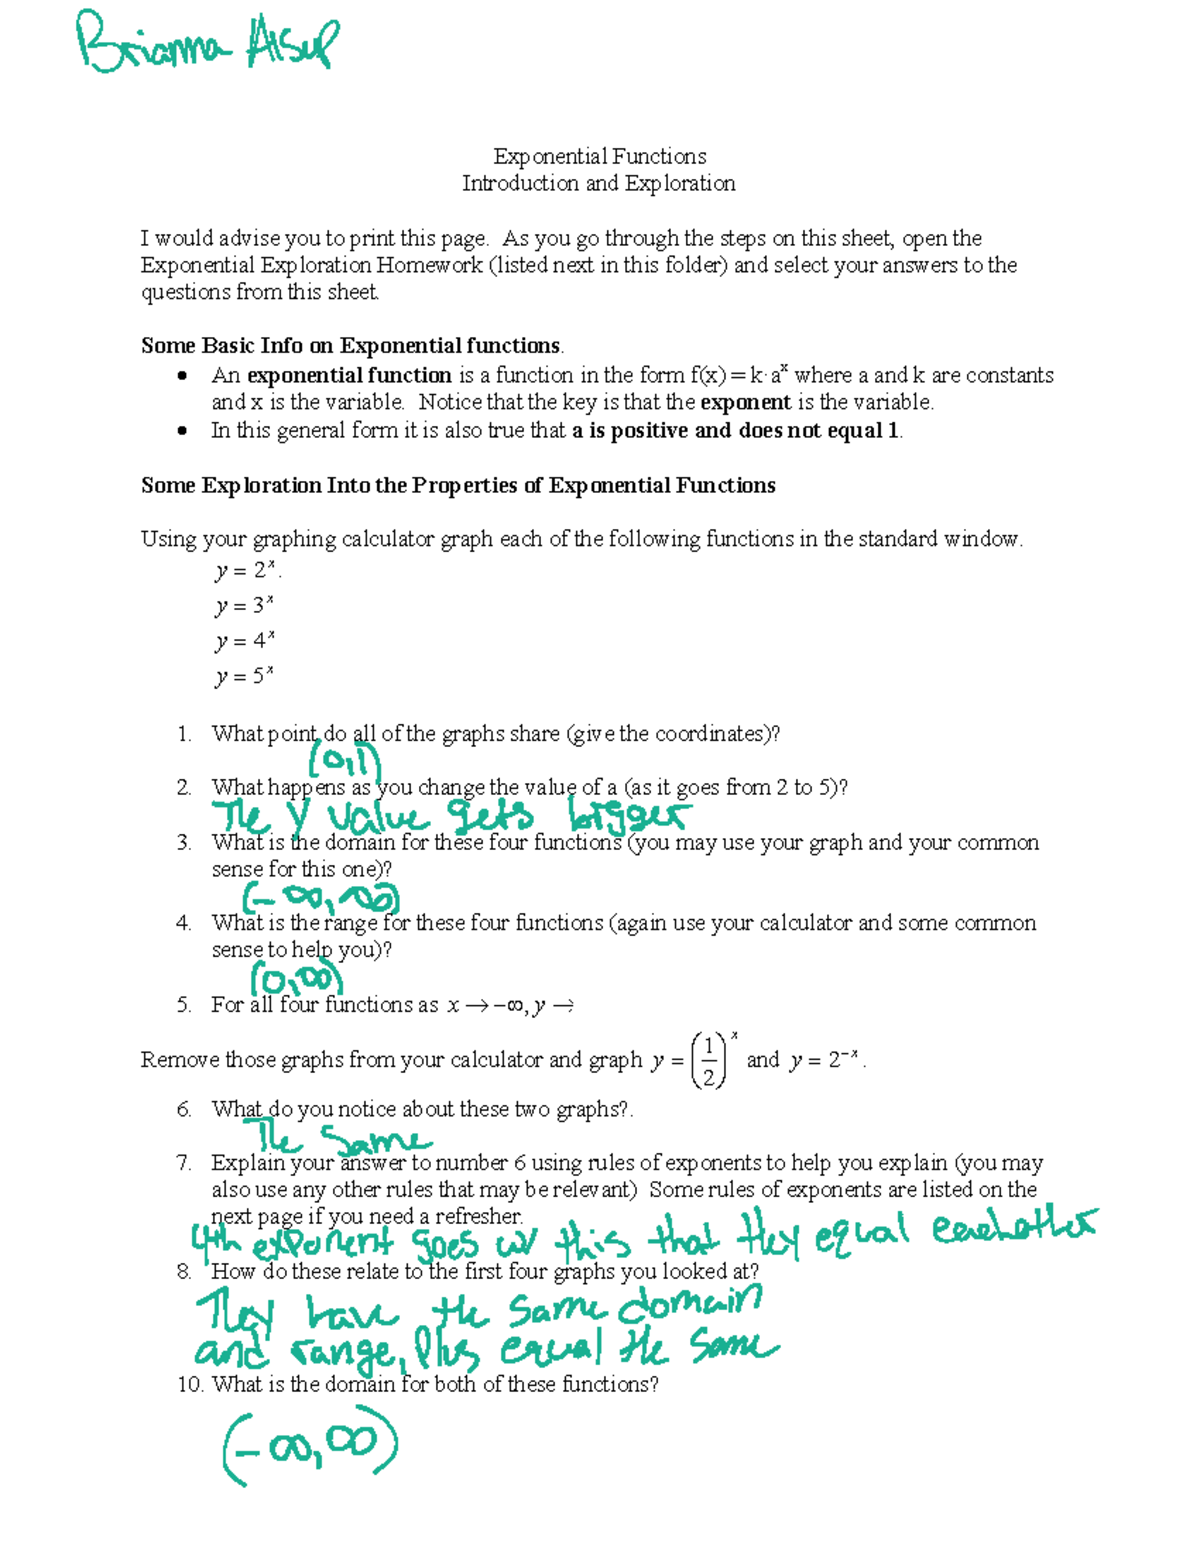 Brianna Alsup
Exponential Functions
Introduction and Exploration
I would advise you to print this page. As you go through the steps on this sheet, open the
Exponential Exploration Homework (listed next in this folder) and select your answers to the
questions from this sheet.
Some Basic Info on Exponential functions.
• An exponential function is a function in the form f(x) = k· aˣ where a and k are constants
and x is the variable. Notice that the key is that the exponent is the variable.
• In this general form it is also true that a is positive and does not equal 1.
Some Exploration Into the Properties of Exponential Functions
Using your graphing calculator graph each of the following functions in the standard window.
y = 2ˣ.
y = 3ˣ
y = 4ˣ
y = 5ˣ
1. What point do all of the graphs share (give the coordinates)?
(0,1)
2. What happens as you change the value of a (as it goes from 2 to 5)?
The y value gets bigger
3. What is the domain for these four functions (you may use your graph and your common
sense for this one)?
(-∞,∞)
4. What is the range for these four functions (again use your calculator and some common
sense to help you)?
(0,∞)
5. For all four functions as x → −∞, y →
Remove those graphs from your calculator and graph y = (1/2)ˣ and y = 2⁻ˣ.
6. What do you notice about these two graphs?.
The Same
7. Explain your answer to number 6 using rules of exponents to help you explain (you may
also use any other rules that may be relevant) Some rules of exponents are listed on the
next page if you need a refresher.
4th exponent goes w/ this that they equal eachother
8. How do these relate to the first four graphs you looked at?
They have the same domain
and range, Plus equal the same
10. What is the domain for both of these functions?
(-∞,∞)